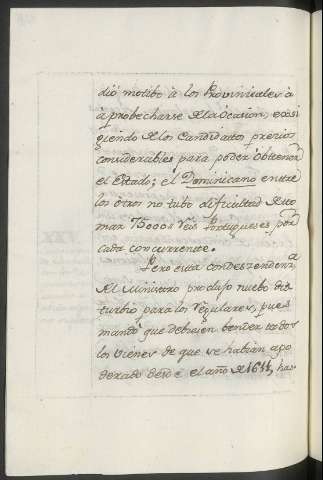 dió motibo à los Provinciales à
à probecharse de la ocasion, exsi
guiendo de los Candidatos precios
considerables para poder obttener
el Estado; el Dominicano enttre
los otros no tubo dificultad de to
mar 75000 Reis Portugueses por
cada concurrente.
Pero esta condeszendenza
del Ministro produjo nuebo dis
turbio para los Regulares, pues
mandò que debiesen bender todos
los vienes de que se habian apo
derado desde el año de 1611, has